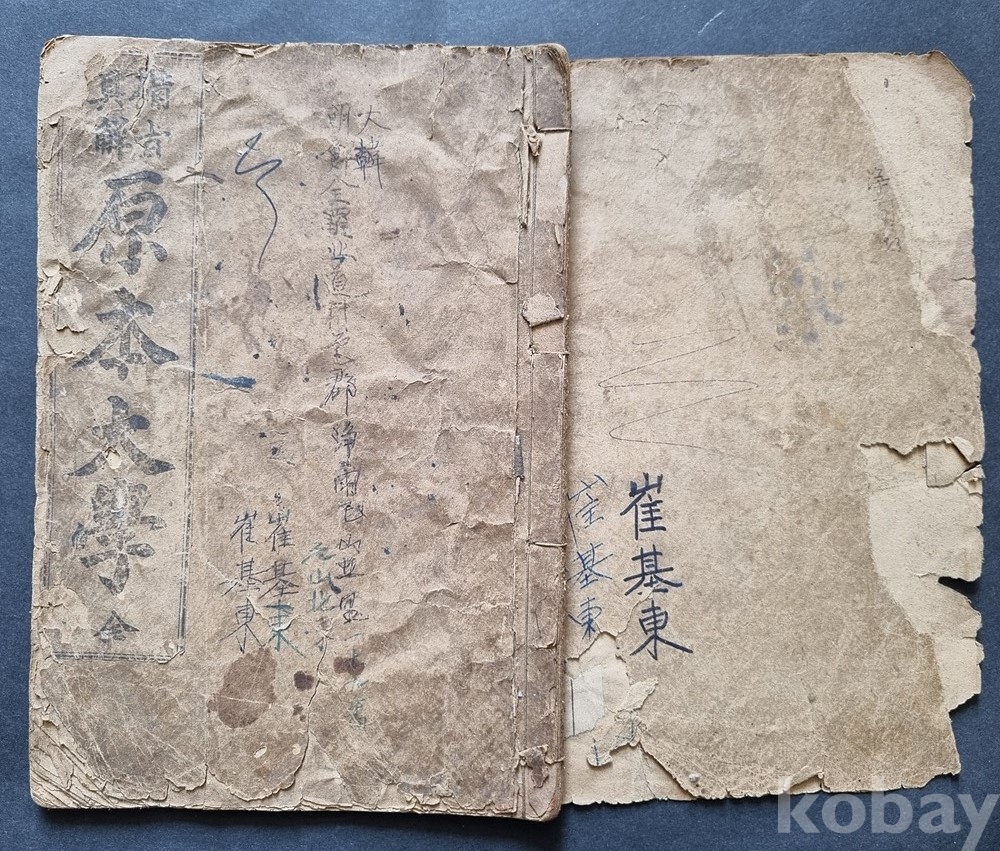 備旨
具解
原本大學 全
大韓
全羅北道井邑郡淨雨面
崔基東
崔基東
崔基東
崔基東
kobay